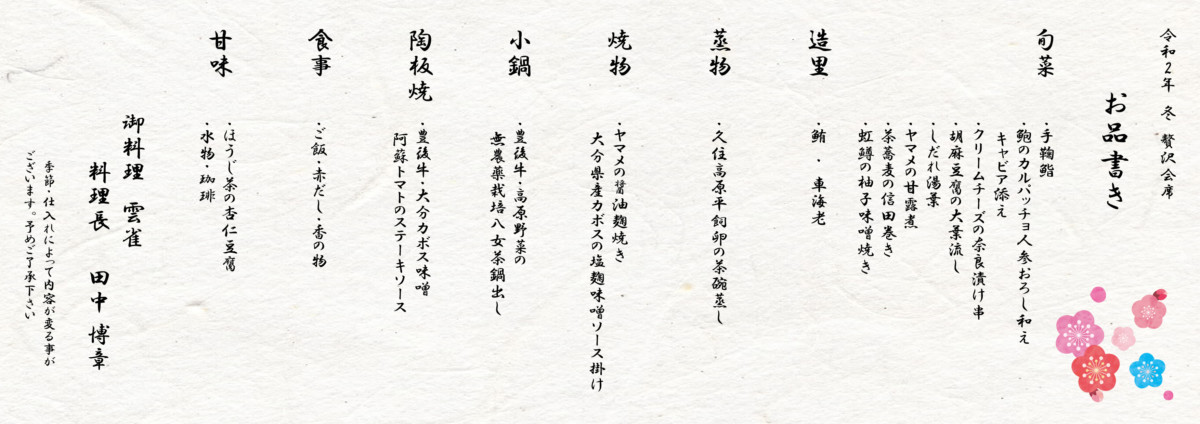 令和2年 冬 贅沢会席
お品書き
旬菜
・手鞠鮨
・鮑のカルパッチョ人参おろし和え
キャビア添え
・クリームチーズの奈良漬け串
・胡麻豆腐の大葉流し
・しだれ湯葉
・ヤマメの甘露煮
・茶蕎麦の信田巻き
・虹鱒の柚子味噌焼き
造里
・鮪・車海老
蒸物
・久住高原平飼卵の茶碗蒸し
焼物
・ヤマメの醤油麹焼き
大分県産カボスの塩麹味噌ソース掛け
小鍋
・豊後牛・高原野菜の
無農薬栽培八女茶鍋出し
陶板焼
・豊後牛・大分カボス味噌
阿蘇トマトのステーキソース
食事
・ご飯・赤だし・香の物
甘味
・ほうじ茶の杏仁豆腐
・水物・珈琲
御料理 雲雀
料理長 田中 博章
季節・仕入れによって内容が変る事が
ございます。予めご了承下さい